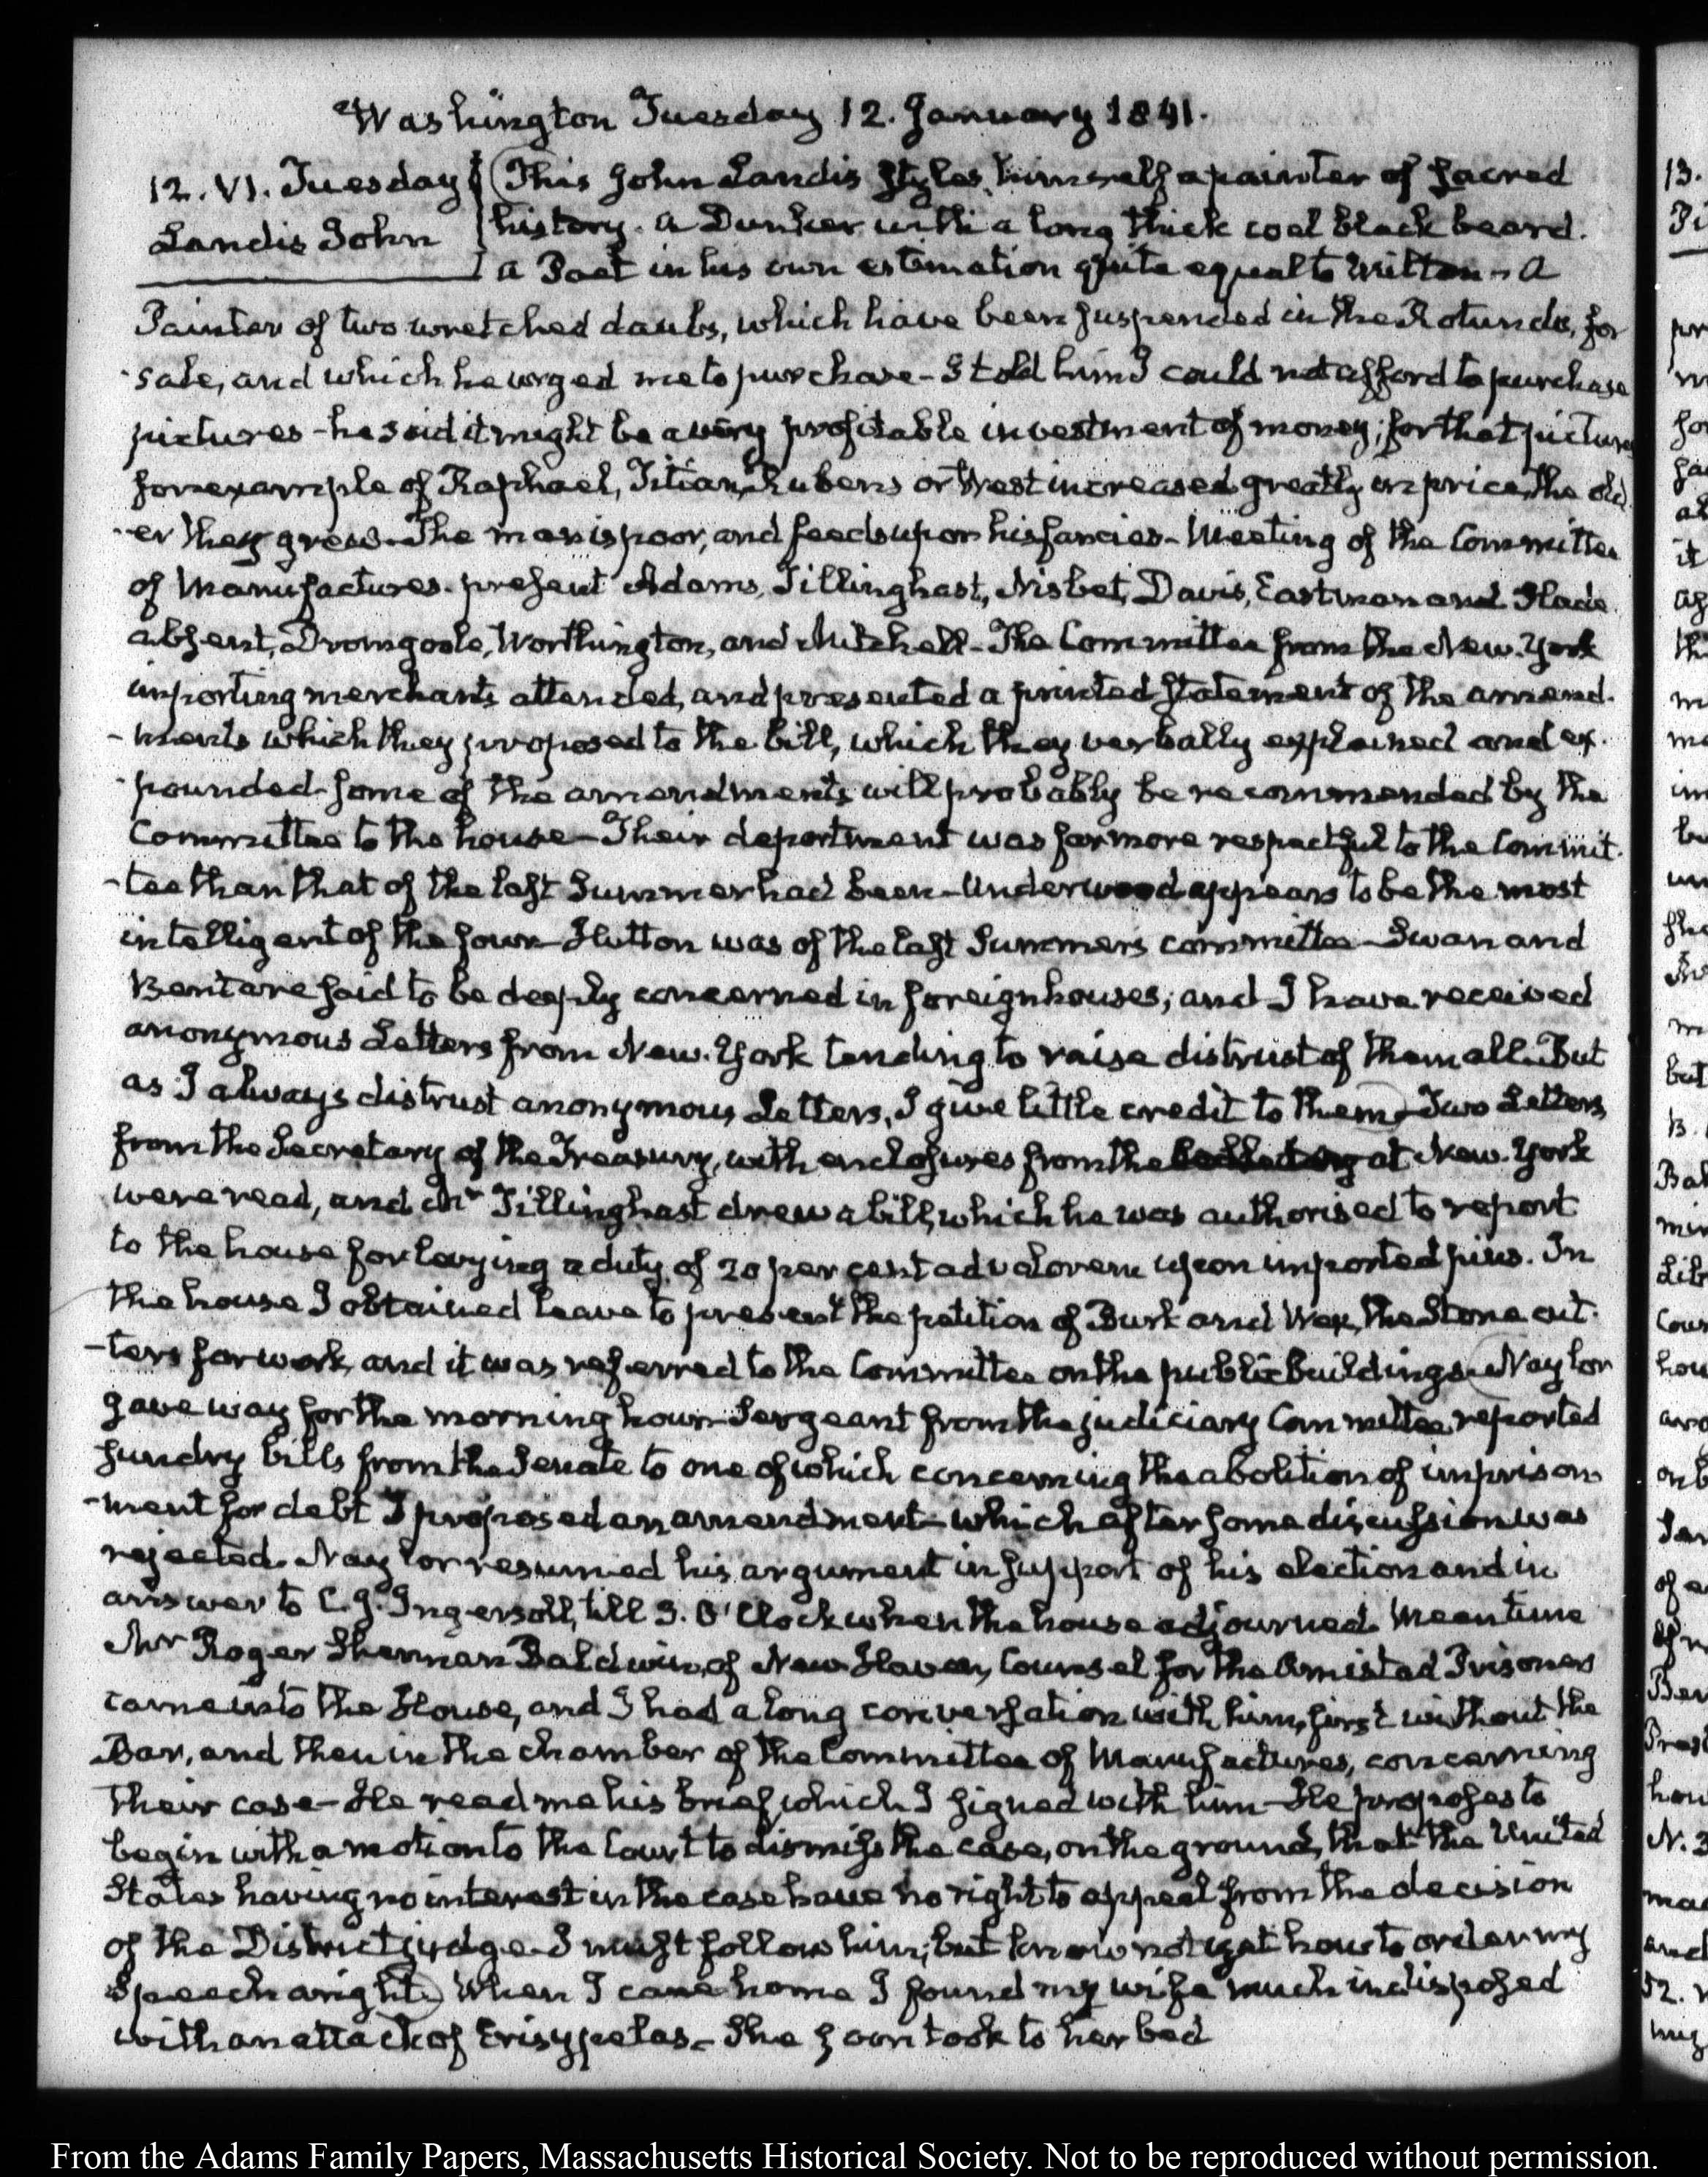 Washington Tuesday 12. January 1841.
12. VI. Tuesday
Landis John
This John Landis styles himself a painter of sacred
history. a Dunker with a long thick coal black beard.
a Poet in his own estimation quite equal to Milton - A
Painter of two wretched daubs, which have been suspended in the Rotunda, for
sale, and which he urged me to purchase - I told him I could not afford to purchase
pictures - he said it might be a very profitable investment of money; for that pictures
for example of Raphael, Titian, Rubens or West increased greatly in price, the old-
-er they grew. The man is poor, and feeds upon his fancies - Meeting of the Committee
of Manufactures. present Adams, Tillinghast, Nisbet, Davis, Eastman and Slade
absent, Dromgoole, Worthington, and Mitchell - The Committee from the New-York
importing merchants attended, and presented a printed statement of the amend-
-ments which they proposed to the bill, which they verbally explained and ex-
-pounded. some of the amendments will probably be recommended by the
Committee to the house - Their deportment was far more respectful to the Commit-
-tee than that of the last Summer had been - Underwood appears to be the most
intelligent of the four - Hutton was of the last Summers committee - Swan and
Bent are said to be deeply concerned in foreign houses; and I have received
anonymous Letters from New-York tending to raise distrust of them all. But
as I always distrust anonymous Letters, I give little credit to them - Two Letters
from the Secretary of the Treasury, with enclosures from the at New-York
were read, and Mr Tillinghast drew a bill, which he was authorised to report
to the house for laying a duty of 20 per cent ad valorem upon imported pins. In
the house I obtained leave to present the petition of Burk and Way, the Stone cut-
-ters for work, and it was referred to the Committee on the public buildings. Naylor
gave way for the morning hour - Sergeant from the judiciary Committee, reported
sundry bills from the Senate to one of which concerning the abolition of imprison-
-ment for debt I proposed an amendment - which after some discussion was
rejected. Naylor resumed his argument in support of his election and in
answer to C. J. Ingersoll, till 3. O'Clock when the house adjourned. Meantime
Mr Roger Sherman Baldwin, of New Haven, Counsel for the Amistad Prisoners
came into the House, and I had a long conversation with him, first without the
Bar, and then in the chamber of the Committee of Manufactures, concerning
their case - He read me his brief which I signed with him - He proposes to
begin with a motion to the Court to dismiss the case, on the ground, that the United
States having no interest in the case have no right to appeal from the decision
of the District judge - I must follow him; but know not yet how to order my
Speech aright. When I came home I found my wife much indisposed
with an attack of Erisypelas - She soon took to her bed
From the Adams Family Papers, Massachusetts Historical Society. Not to be reproduced without permission.